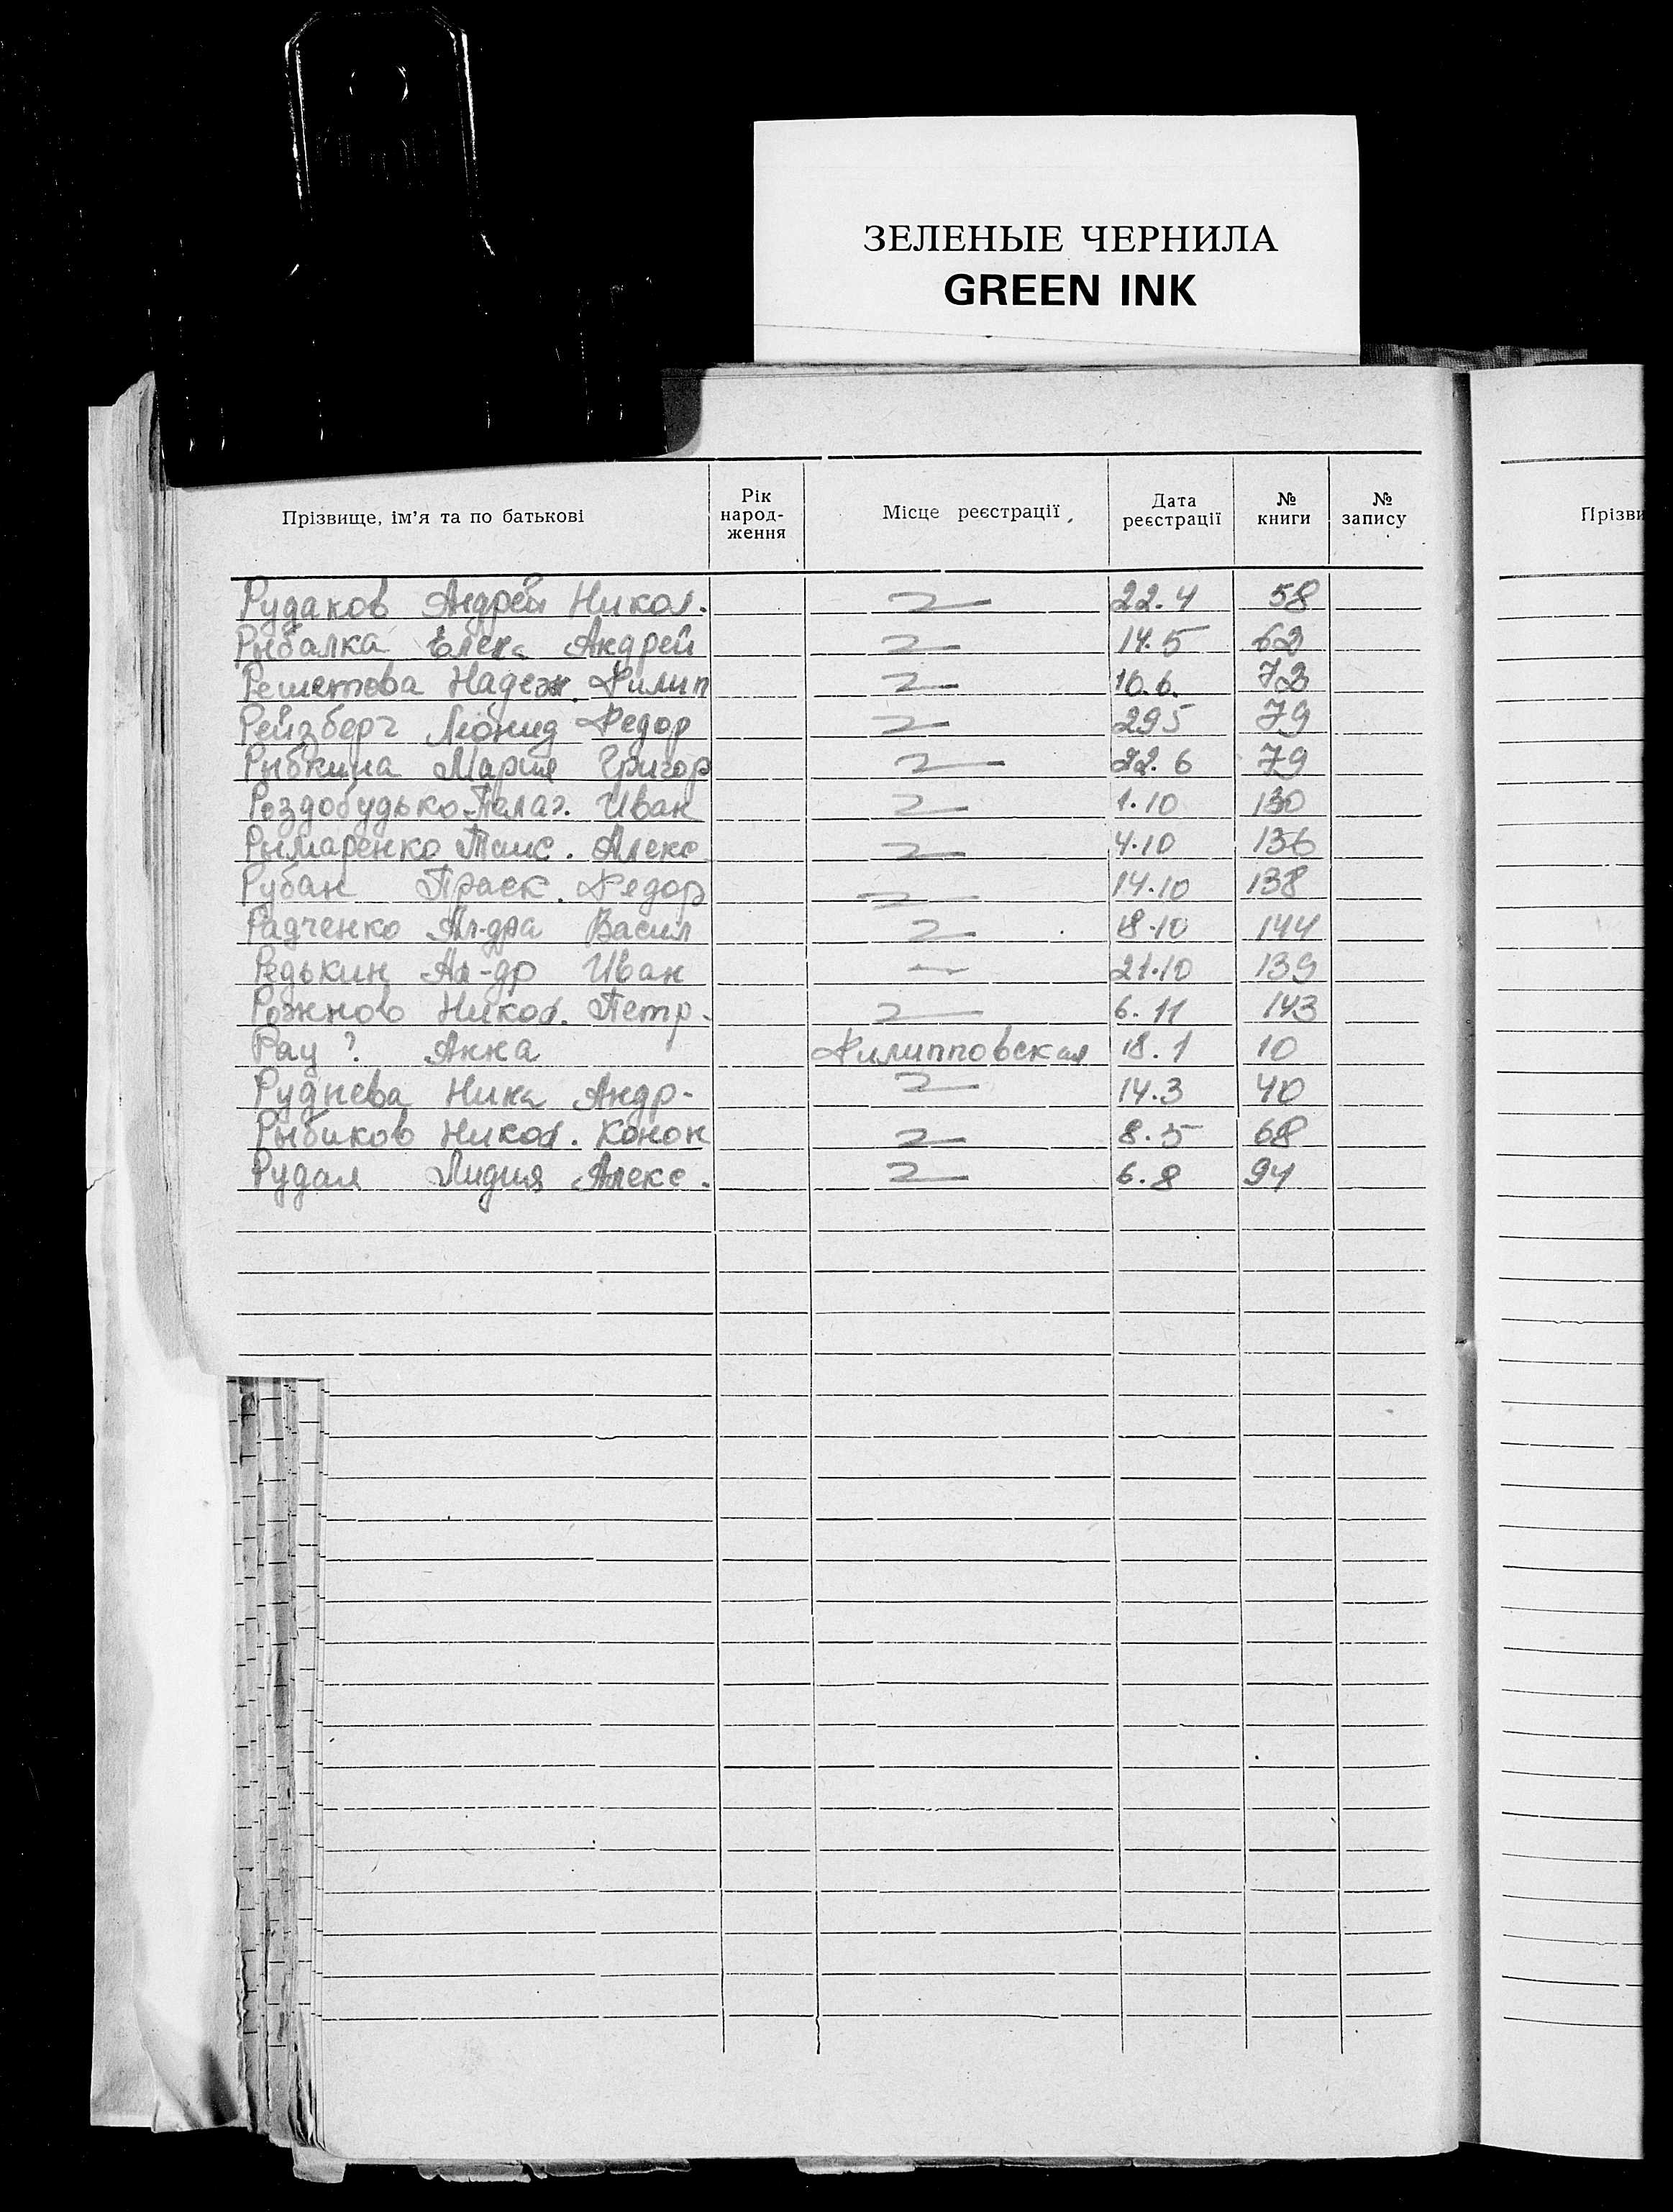 ЗЕЛЕНЫЕ ЧЕРНИЛА
GREEN INK
Прізвище, ім'я та по батькові Рік народ-ження Місце реєстрації Дата реєстрації № книги № запису Прізви
Рудаков Андрей Никол. 22.4 58
Рыбалка Елена Андрей 14.5 62
Решетова Надеж. Филип 10.6. 72
Рейзберг Леонид Федор 29 5 79
Рыбкина Мария Григор 22.6 79
Роздобудько Пелаг. Иван 1.10 130
Рымаренко Таис. Алекс 4.10 136
Рубан Праск. Федор 14.10 138
Радченко Ал-дра Васил 18.10 144
Редькин Ал-др Иван 21.10 139
Рожнов Никол. Петр. 6.11 143
Рац ? Анна Филипповская 18.1 10
Руднева Нина Андр- 14.3 40
Рыбиков Никол. Конон 8.5 68
Рудая Лидия Алекс. 6.8 94